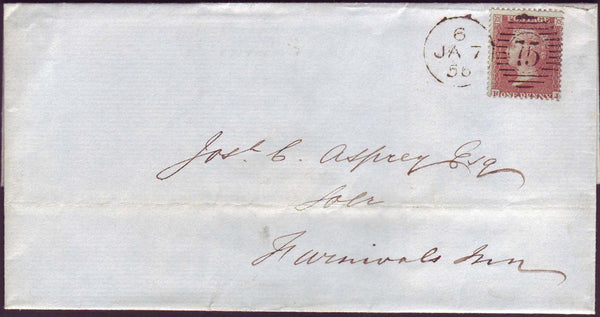 6
JA 7
56
POSTAGE
75
ONE PENNY
Josh. C. Asprey Esq
Solr
Furnivals Inn